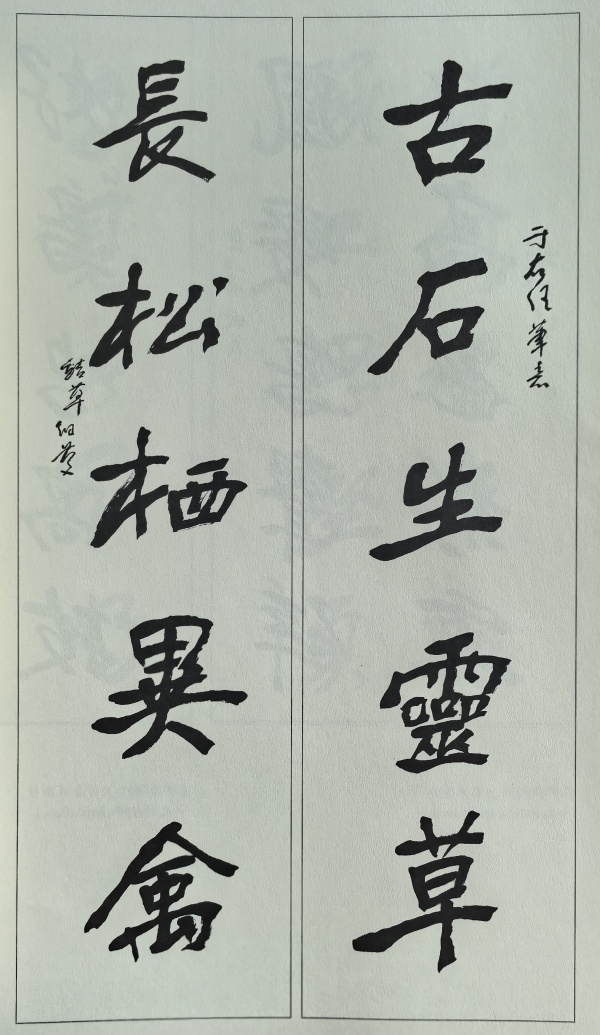 古石生靈草
于右任筆意
長松栖異禽
草